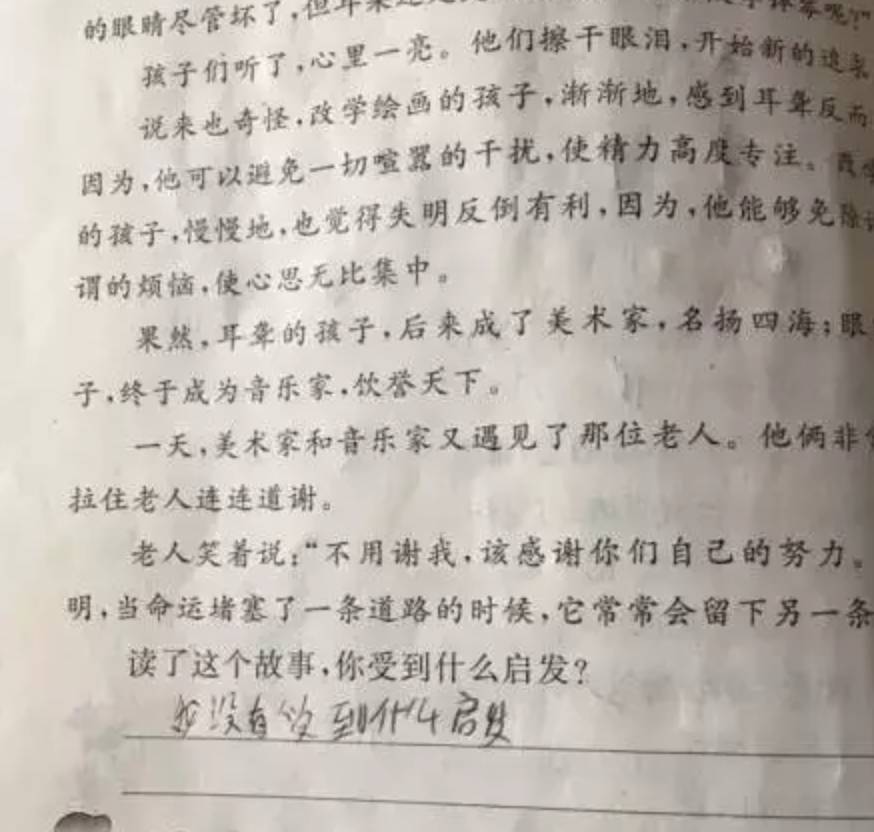 的眼睛尽管坏了，但耳朵还
孩子们听了，心里一亮。他们擦干眼泪，开始新的追求
说来也奇怪，改学绘画的孩子，渐渐地，感到耳聋反而
因为，他可以避免一切喧嚣的干扰，使精力高度专注。
的孩子，慢慢地，也觉得失明反倒有利，因为，他能够免除
谓的烦恼，使心思无比集中。
果然，耳聋的孩子，后来成了美术家，名扬四海；眼
子，终于成为音乐家，饮誉天下。
一天，美术家和音乐家又遇见了那位老人。他俩非
拉住老人连连道谢。
老人笑着说：“不用谢我，该感谢你们自己的努力。
明，当命运堵塞了一条道路的时候，它常常会留下另一条
读了这个故事，你受到什么启发？
我没有受到什么启发